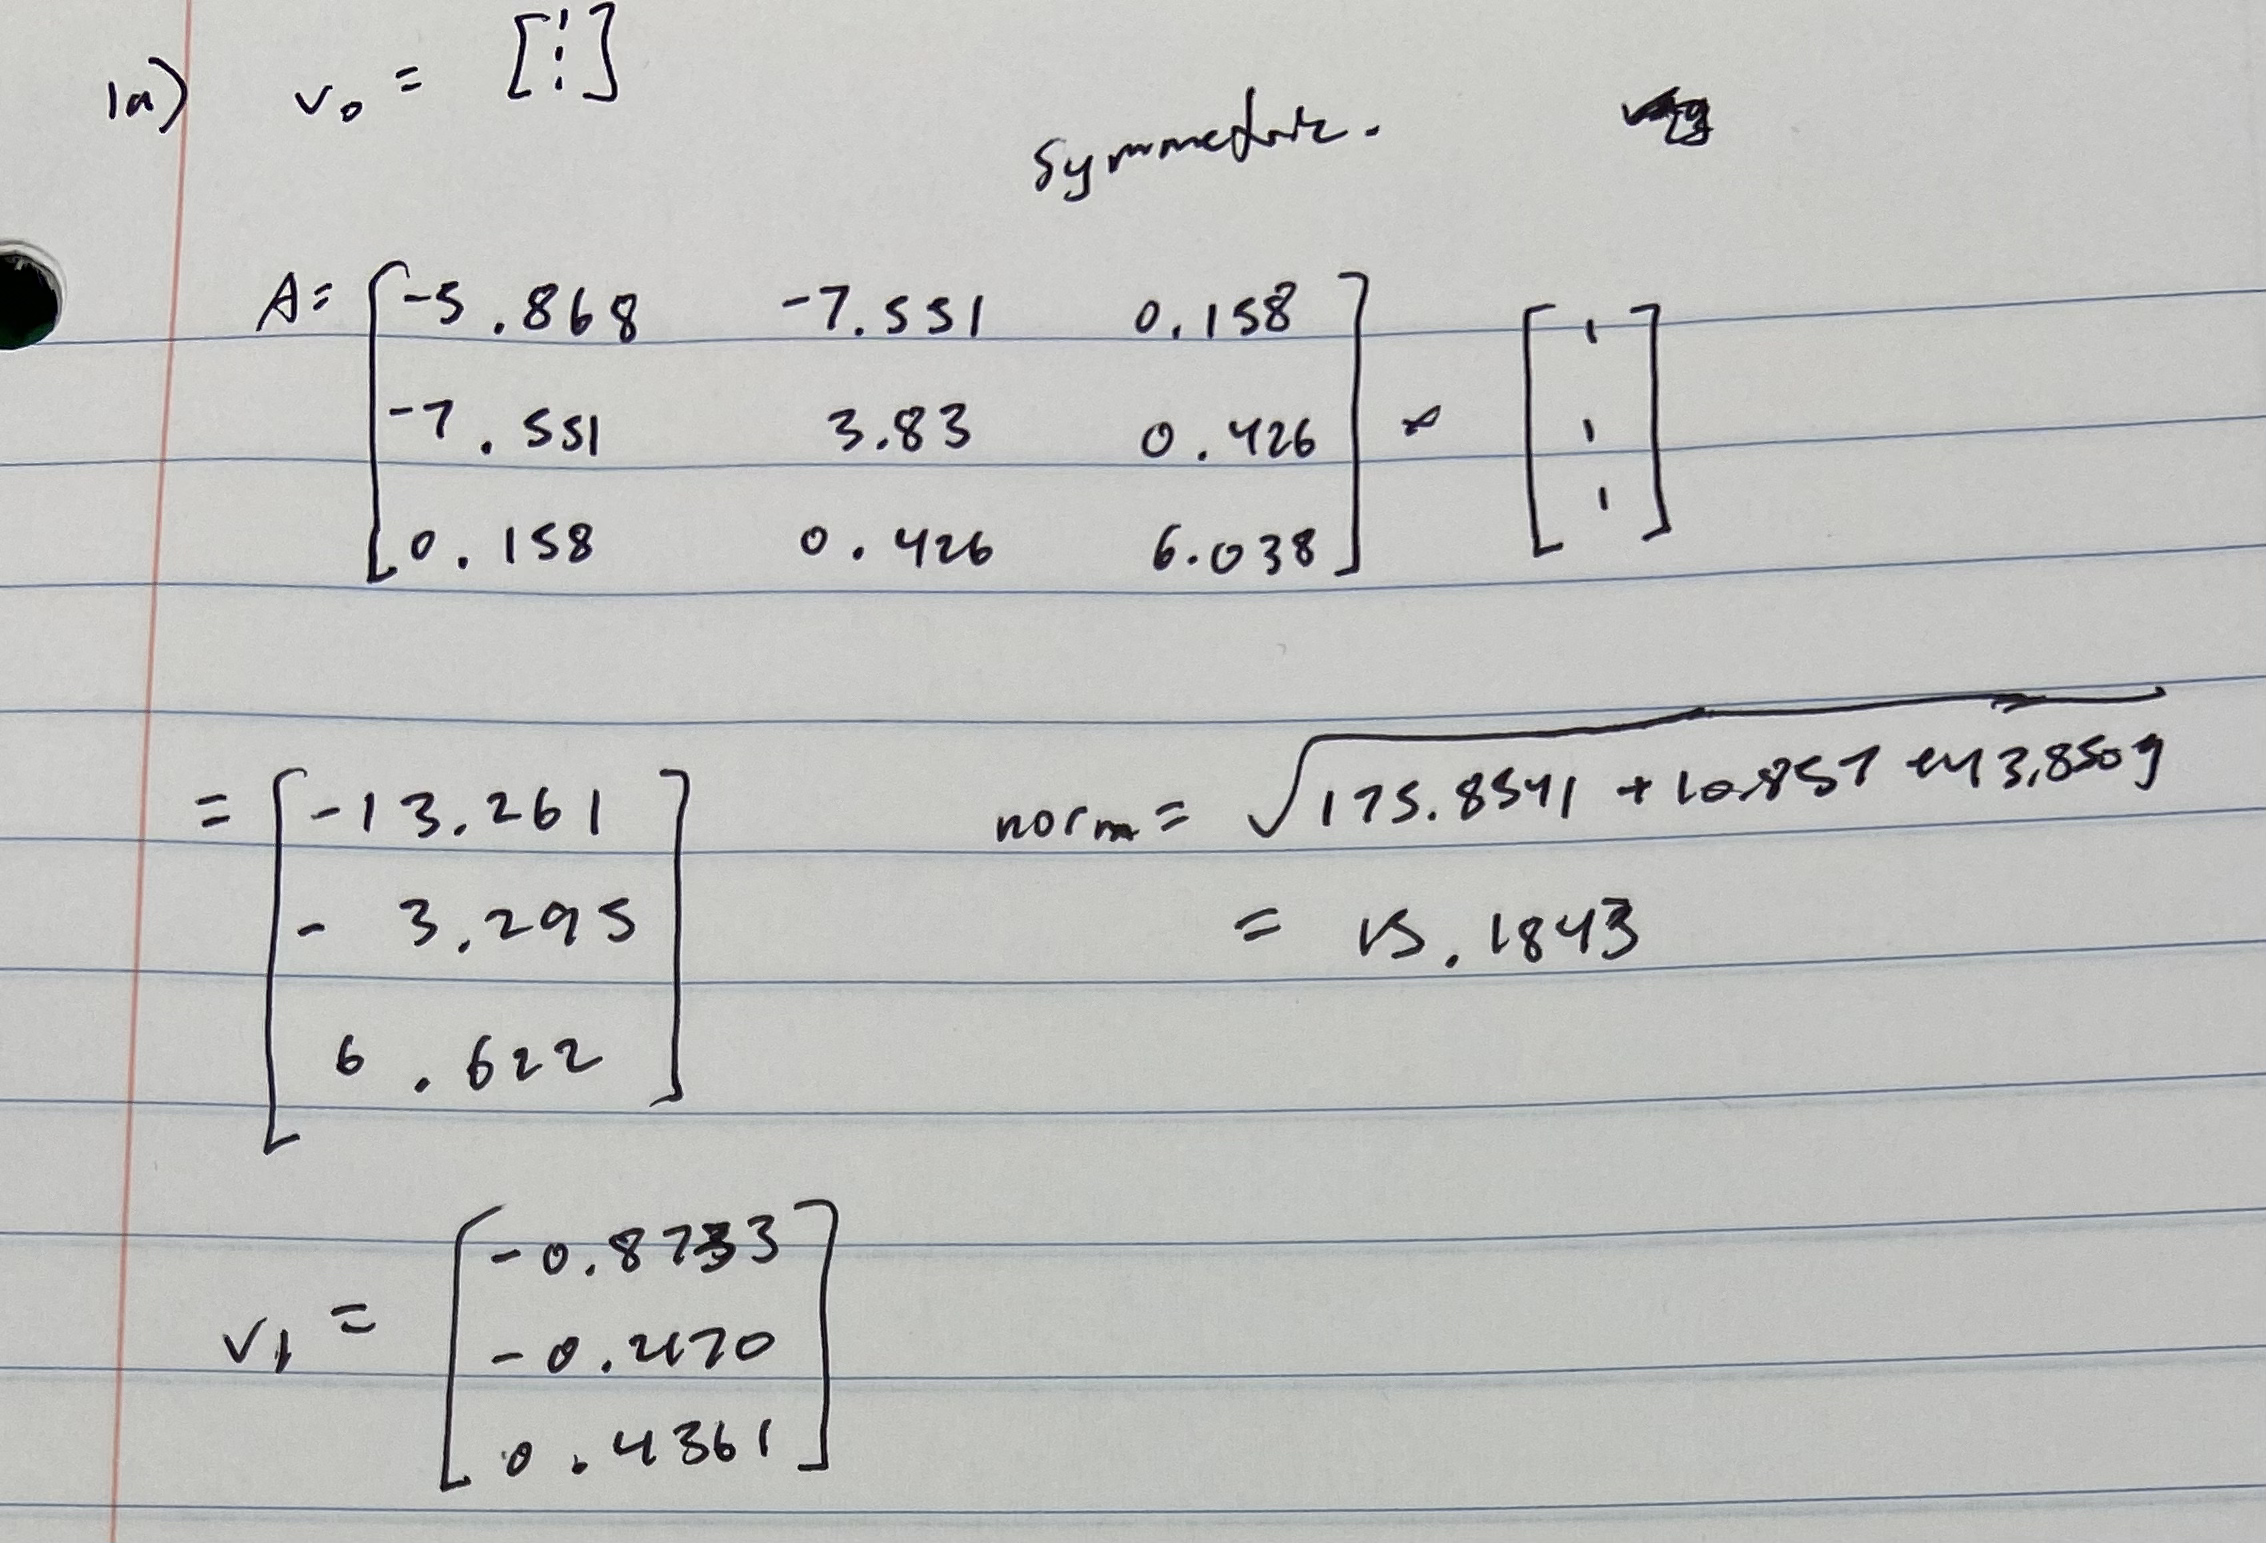 1a) v₀ = [1 1 1]
Symmetric.
A= [-5.868 -7.551 0.158] [1]
[-7.551 3.83 0.426] * [1]
[0.158 0.426 6.038] [1]
= [-13.261]
[-3.295]
[6.622]
norm = √175.8541 + 10.857 + 43.8509
= 15.1843
v₁ = [-0.8733]
[-0.2170]
[0.4361]